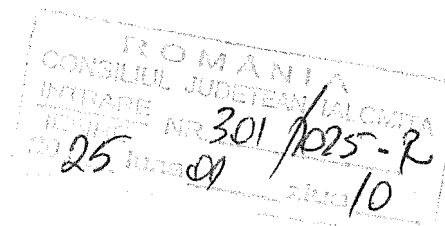 ROMÂNIA
CONSILIUL JUDEȚEAN IALOMIȚA
INTRARE
NR. 301/2025-R
20 25 luna 01 ziua 10